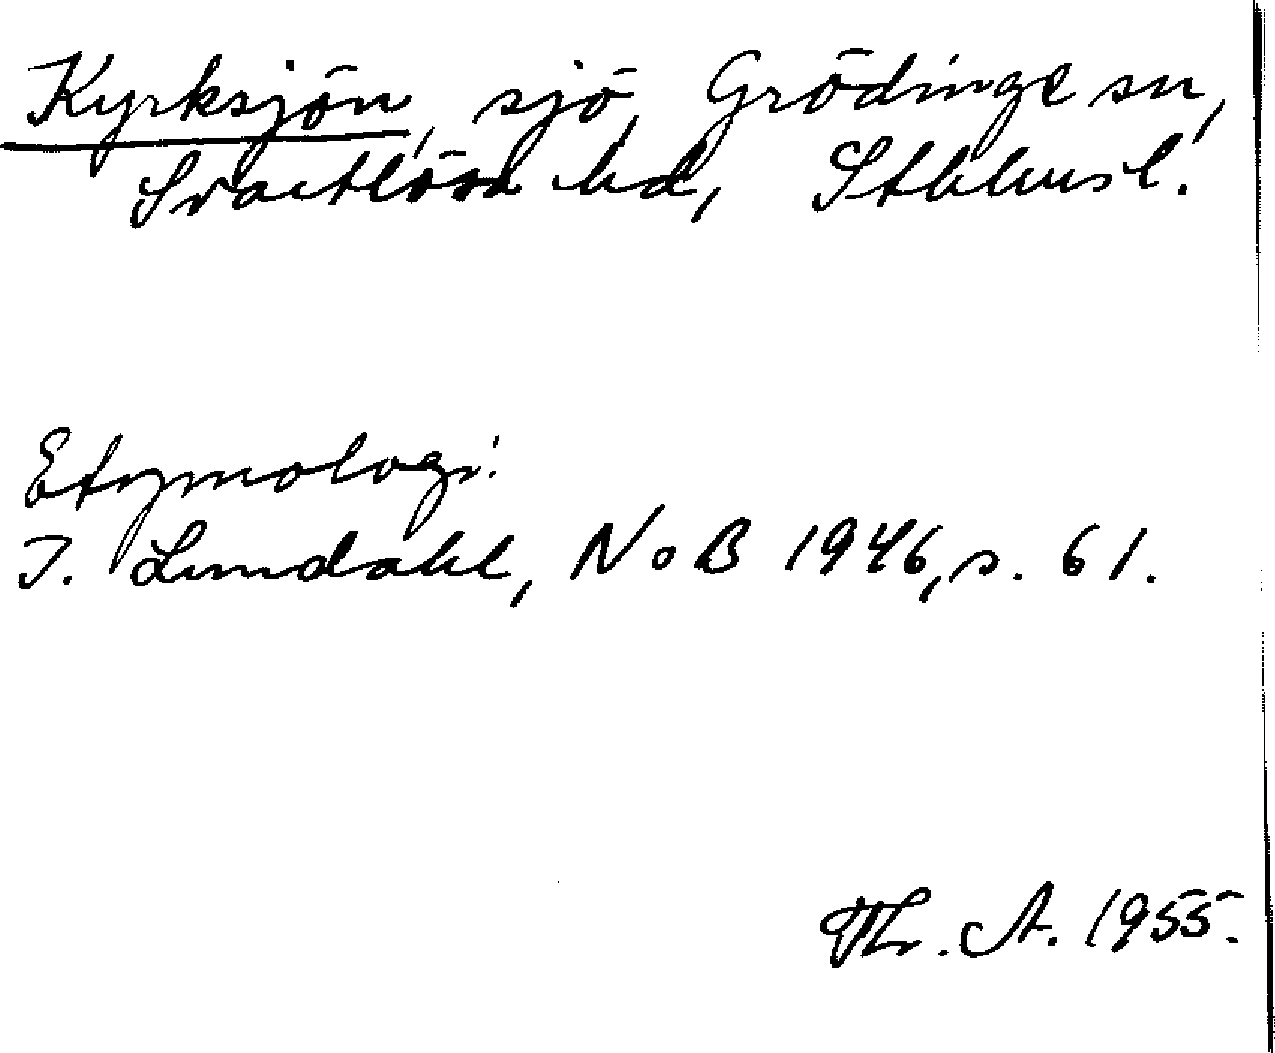 Kyrksjön, sjö, Grödinge sn,
Svartlösa hd, Sthlms l.
Etymologi:
I. Lundahl, NoB 1946, s. 61.
Th. A. 1955.